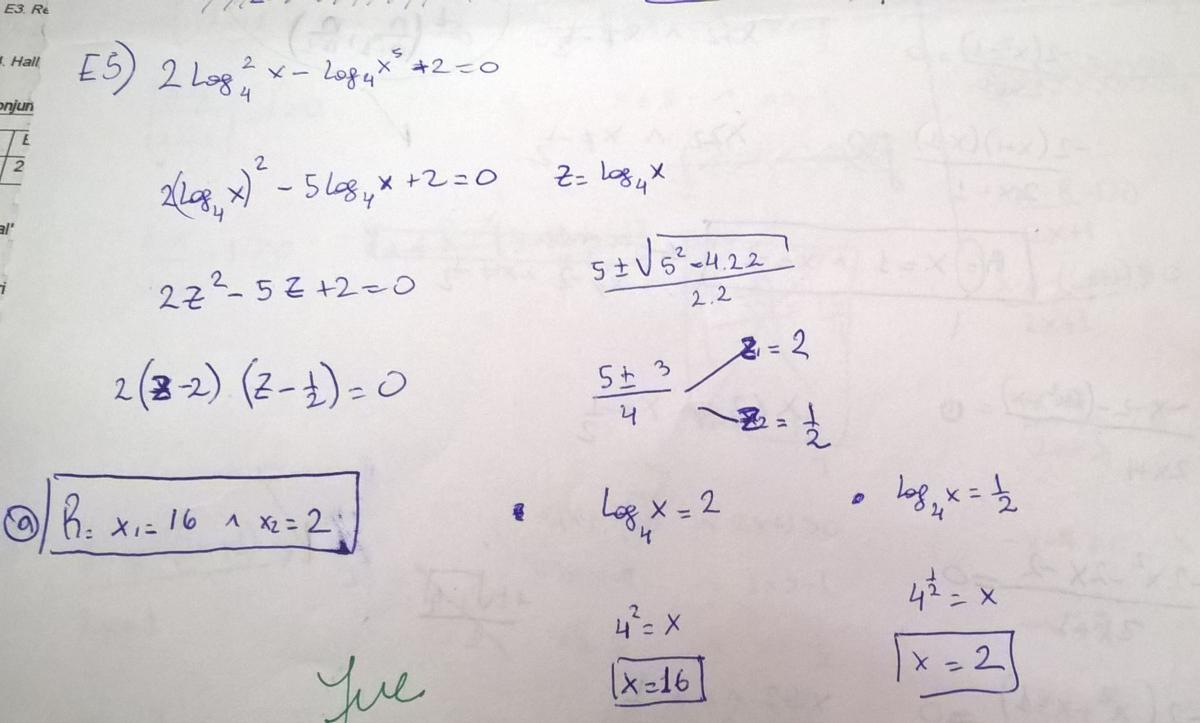 E3. Re
. Hall
onjun
E
2
al'
E5) 2 Log₄² x - Log₄ x⁵ + 2 = 0
2(Log₄ x)² - 5 Log₄ x + 2 = 0 z = Log₄ x
2z² - 5z + 2 = 0
(5 ± √(5² - 4.2.2)) / 2.2
2(z - 2) . (z - 1/2) = 0
(5 ± 3) / 4
z₁ = 2
z₂ = 1/2
R = x₁ = 16 ∧ x₂ = 2
• Log₄ x = 2 • Log₄ x = 1/2
4² = x 4^(1/2) = x
x = 16 x = 2